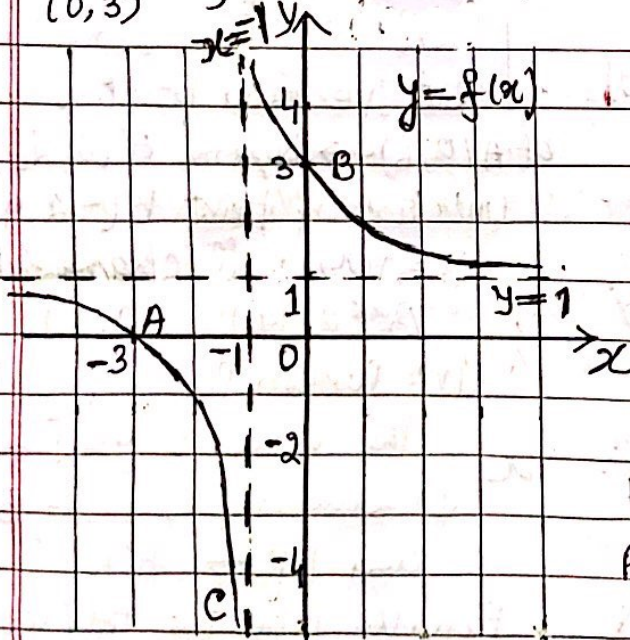 (0,3)
x=-1
y
4
y=f(x)
3
B
1
y=1
A
-3
-1
0
x
-2
-4
C